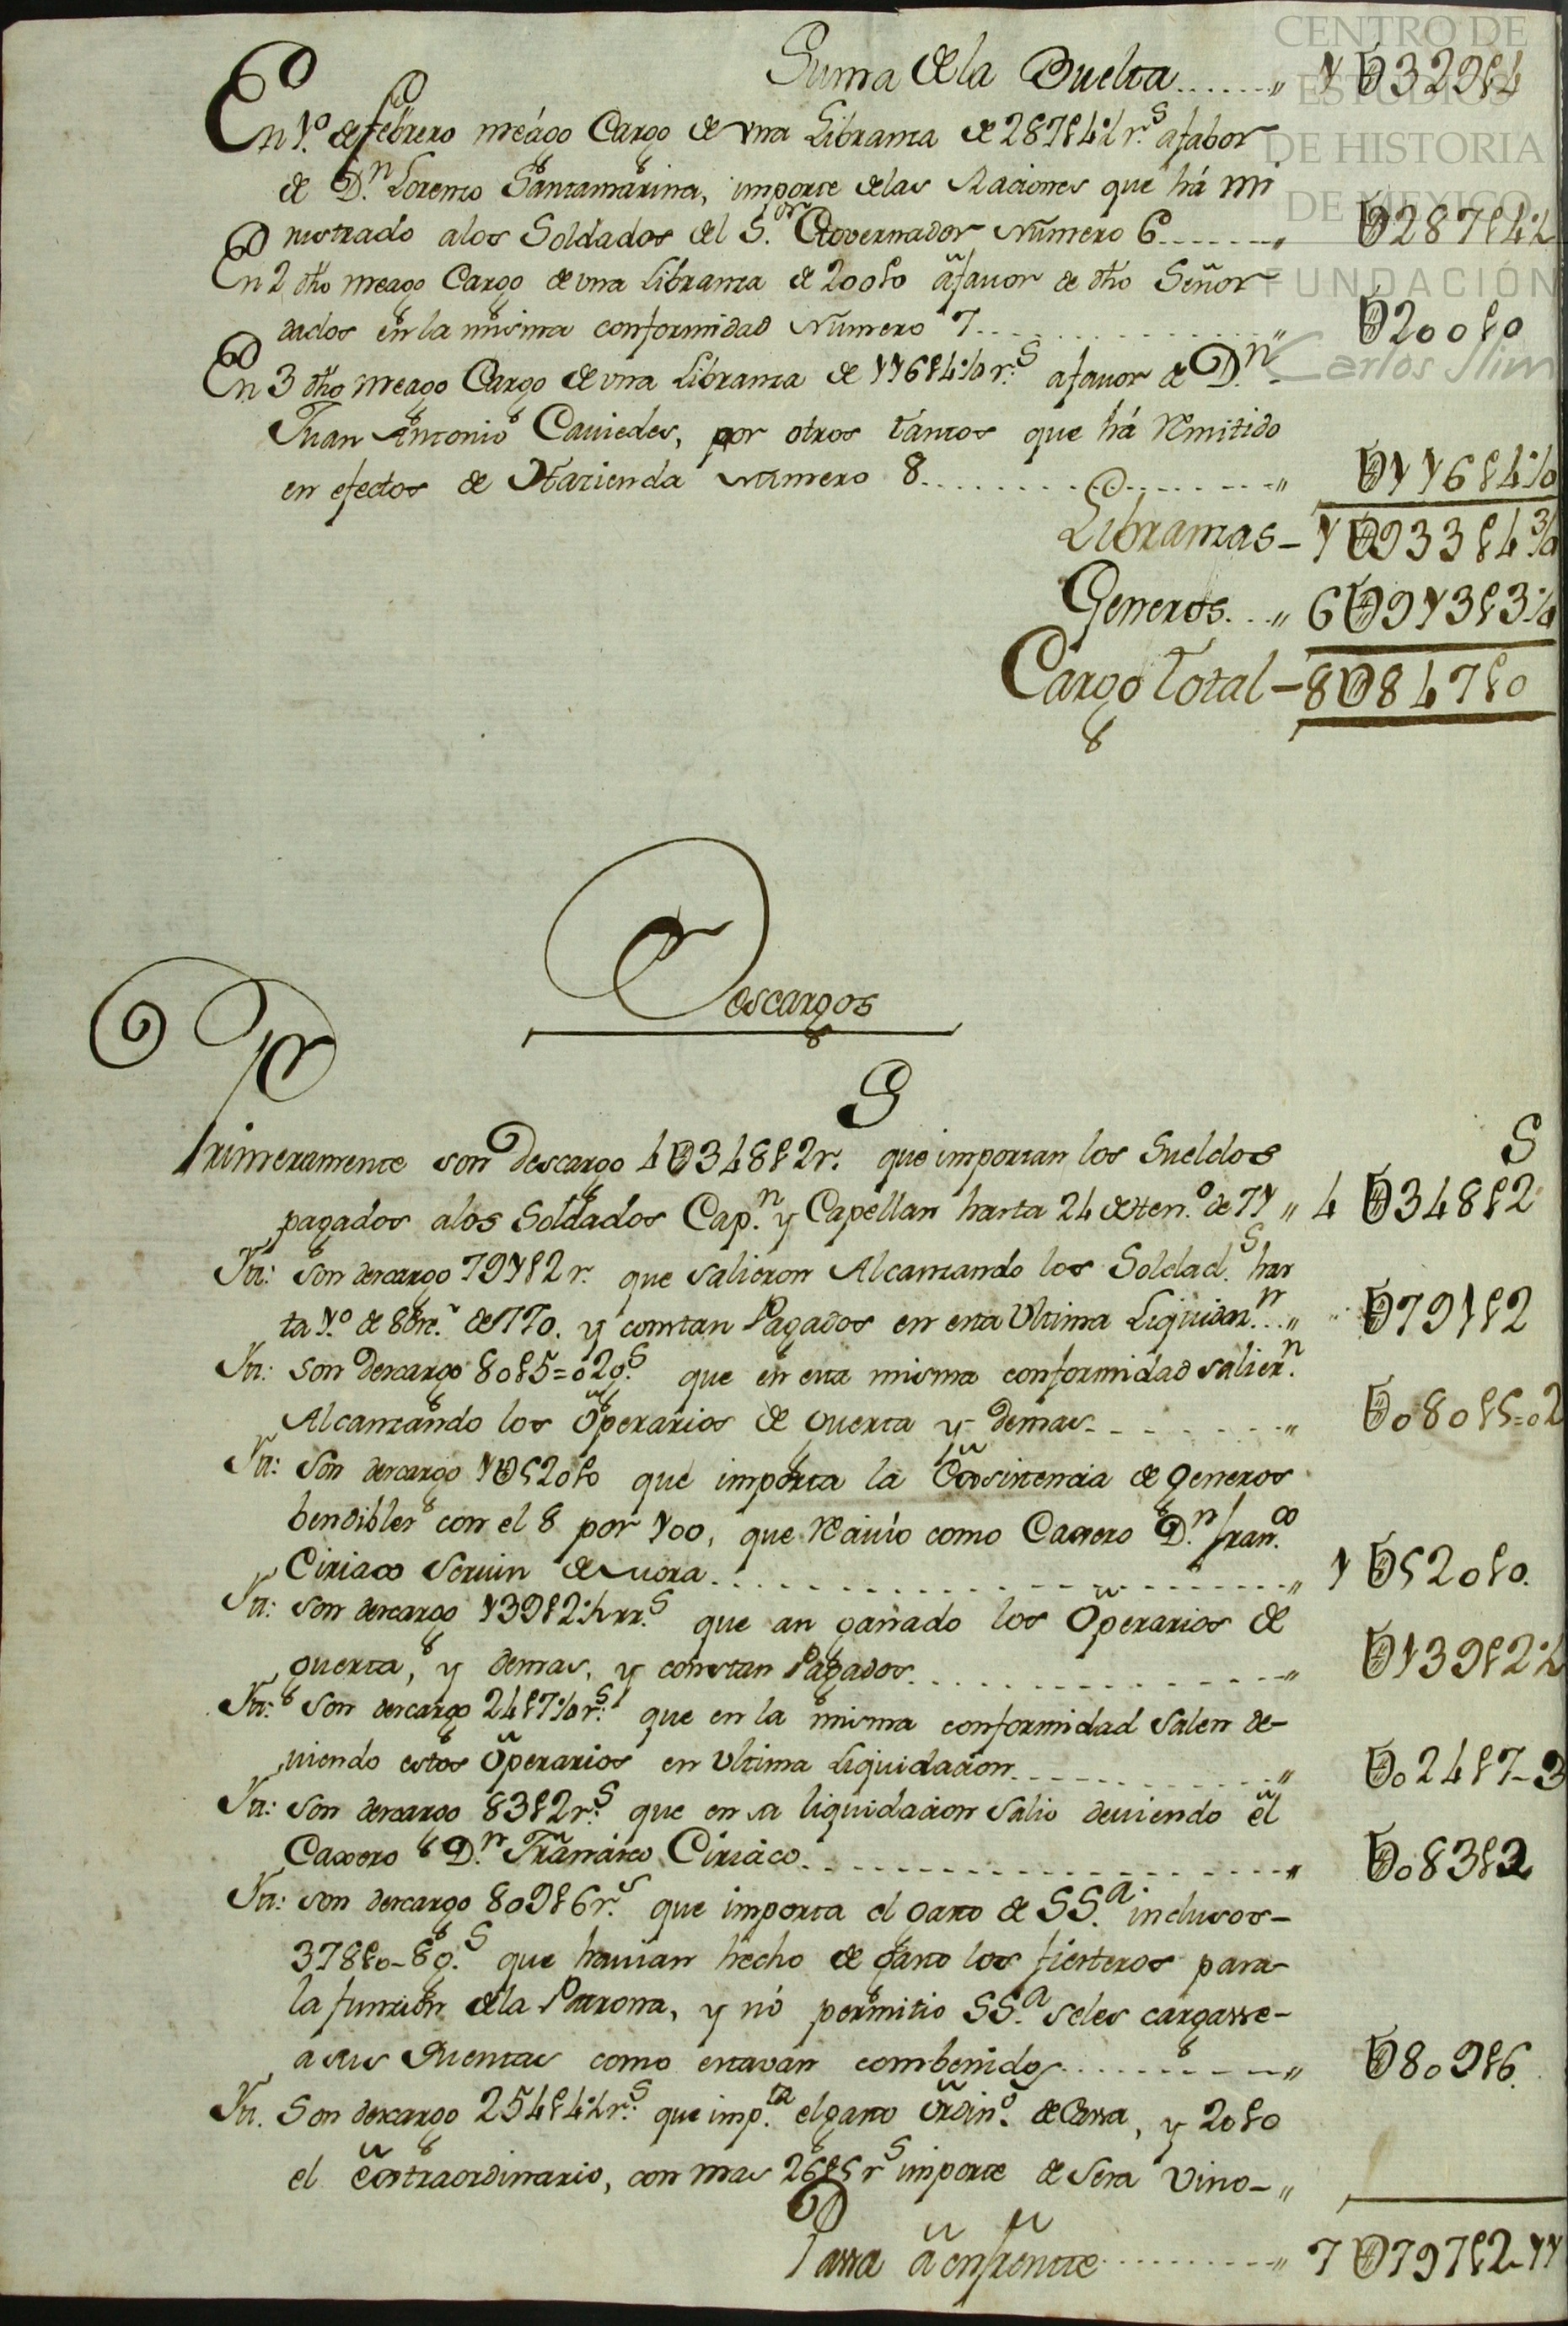 CENTRO DE
ESTUDIOS
DE HISTORIA
DE MEXICO
FUNDACIÓN
Carlos Slim
Suma de la Buelta......„ 1U0329p4
En 1.º de febrero me ágo Cargo de vna Libranza de 287p4½ r.s afabor
de D.n Lorenzo Santamarina, importe delas Raciones que há mi
nistrado alos Soldados del S.or Governador Número 6......„ U287p4½
En 2 dho me ago Cargo de vna Libranza de 200p0 afauor de dho Señor
dados en la misma conformidad Número 7......„ U200p0
En 3 dho me ago Cargo de vna Libranza de 116p4¼ r.s afauor de D.n
Juan Antonio Cauiedes, por otros tantos que há Remitido
en efectos de Hazienda Número 8......„ U116p4¼
Libranzas – 1U933p4¾
Generos...„ 6U913p3¼
Cargo Total – 8U847p0
Descargos
Primeramente son descargo 4U348p2 r.s que importan los Sueldos
pagados alos Soldados Cap.n y Capellan hasta 24 de Hen.º de 71 „ 4U348p2
Yn: Son descargo 791p2 r. que salieron Alcanzando los Soldad.s has
ta 1.º de 8bre. de 1770. y constan Pagados en esta Vltima Liquidan.n..„ U791p2
Yn: son Descargo 80p5=02g.s que en esta misma conformidad salier.n
Alcanzando los Operarios de Querta y demas......„ U080p5=02
Yn: Son descargo 1U520p0 que importa la Exsistencia de generos
bendibles con el 8 por 100, que Reciuio como Caxero D.n Fran.co
Ciriaco Seruin de Mora......„ 1U520p0.
Yn: son descargo 139p2½ rr.s que an ganado los Operarios de
querta, y demas, y constan Pagados......„ U139p2½
Yn: Son descargo 24p7¼ r.s que en la misma conformidad salen de-
uiendo estos Operarios en Vltima Liquidacion......„ U024p7-3
Yn: Son descargo 83p2 r.s que en sa liquidacion Salio deuiendo el
Caxero D.n Francisco Ciriaco......„ U083p2
Yn: son descargo 809p6 r.s que importa el gasto de SS.a inclusos-
378p0-8g.s que hauian hecho de gasto los fiesteros para
la funzion dela Patrona, y nó permitio SS.a seles cargasse-
a sus Quentas como estavan combenidos......„ U809p6.
Yn. Son descargo 254p4½ r.s que imp.ta el gasto Ordin.º de Cassa, y 20p0
el Extraordinario, con mas 26p5 r.s importe de Sera Vino-„
Passa á enfrente......„ 7U797p2-11